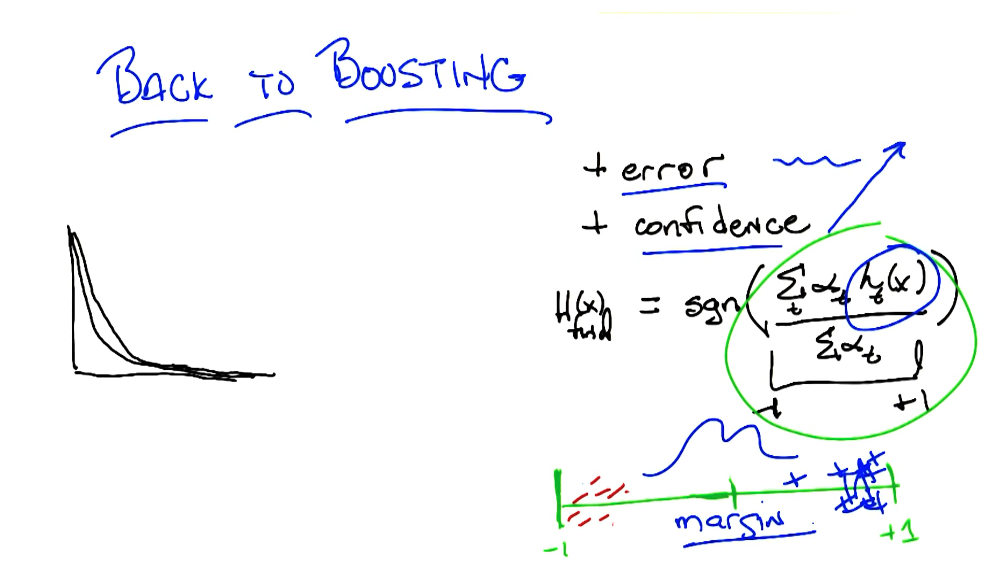 BACK TO BOOSTING
+ error
+ confidence
H(x) final = sgn( Σ_t α_t h_t(x) / Σ_t α_t )
-1 +1
margin
-1 +1